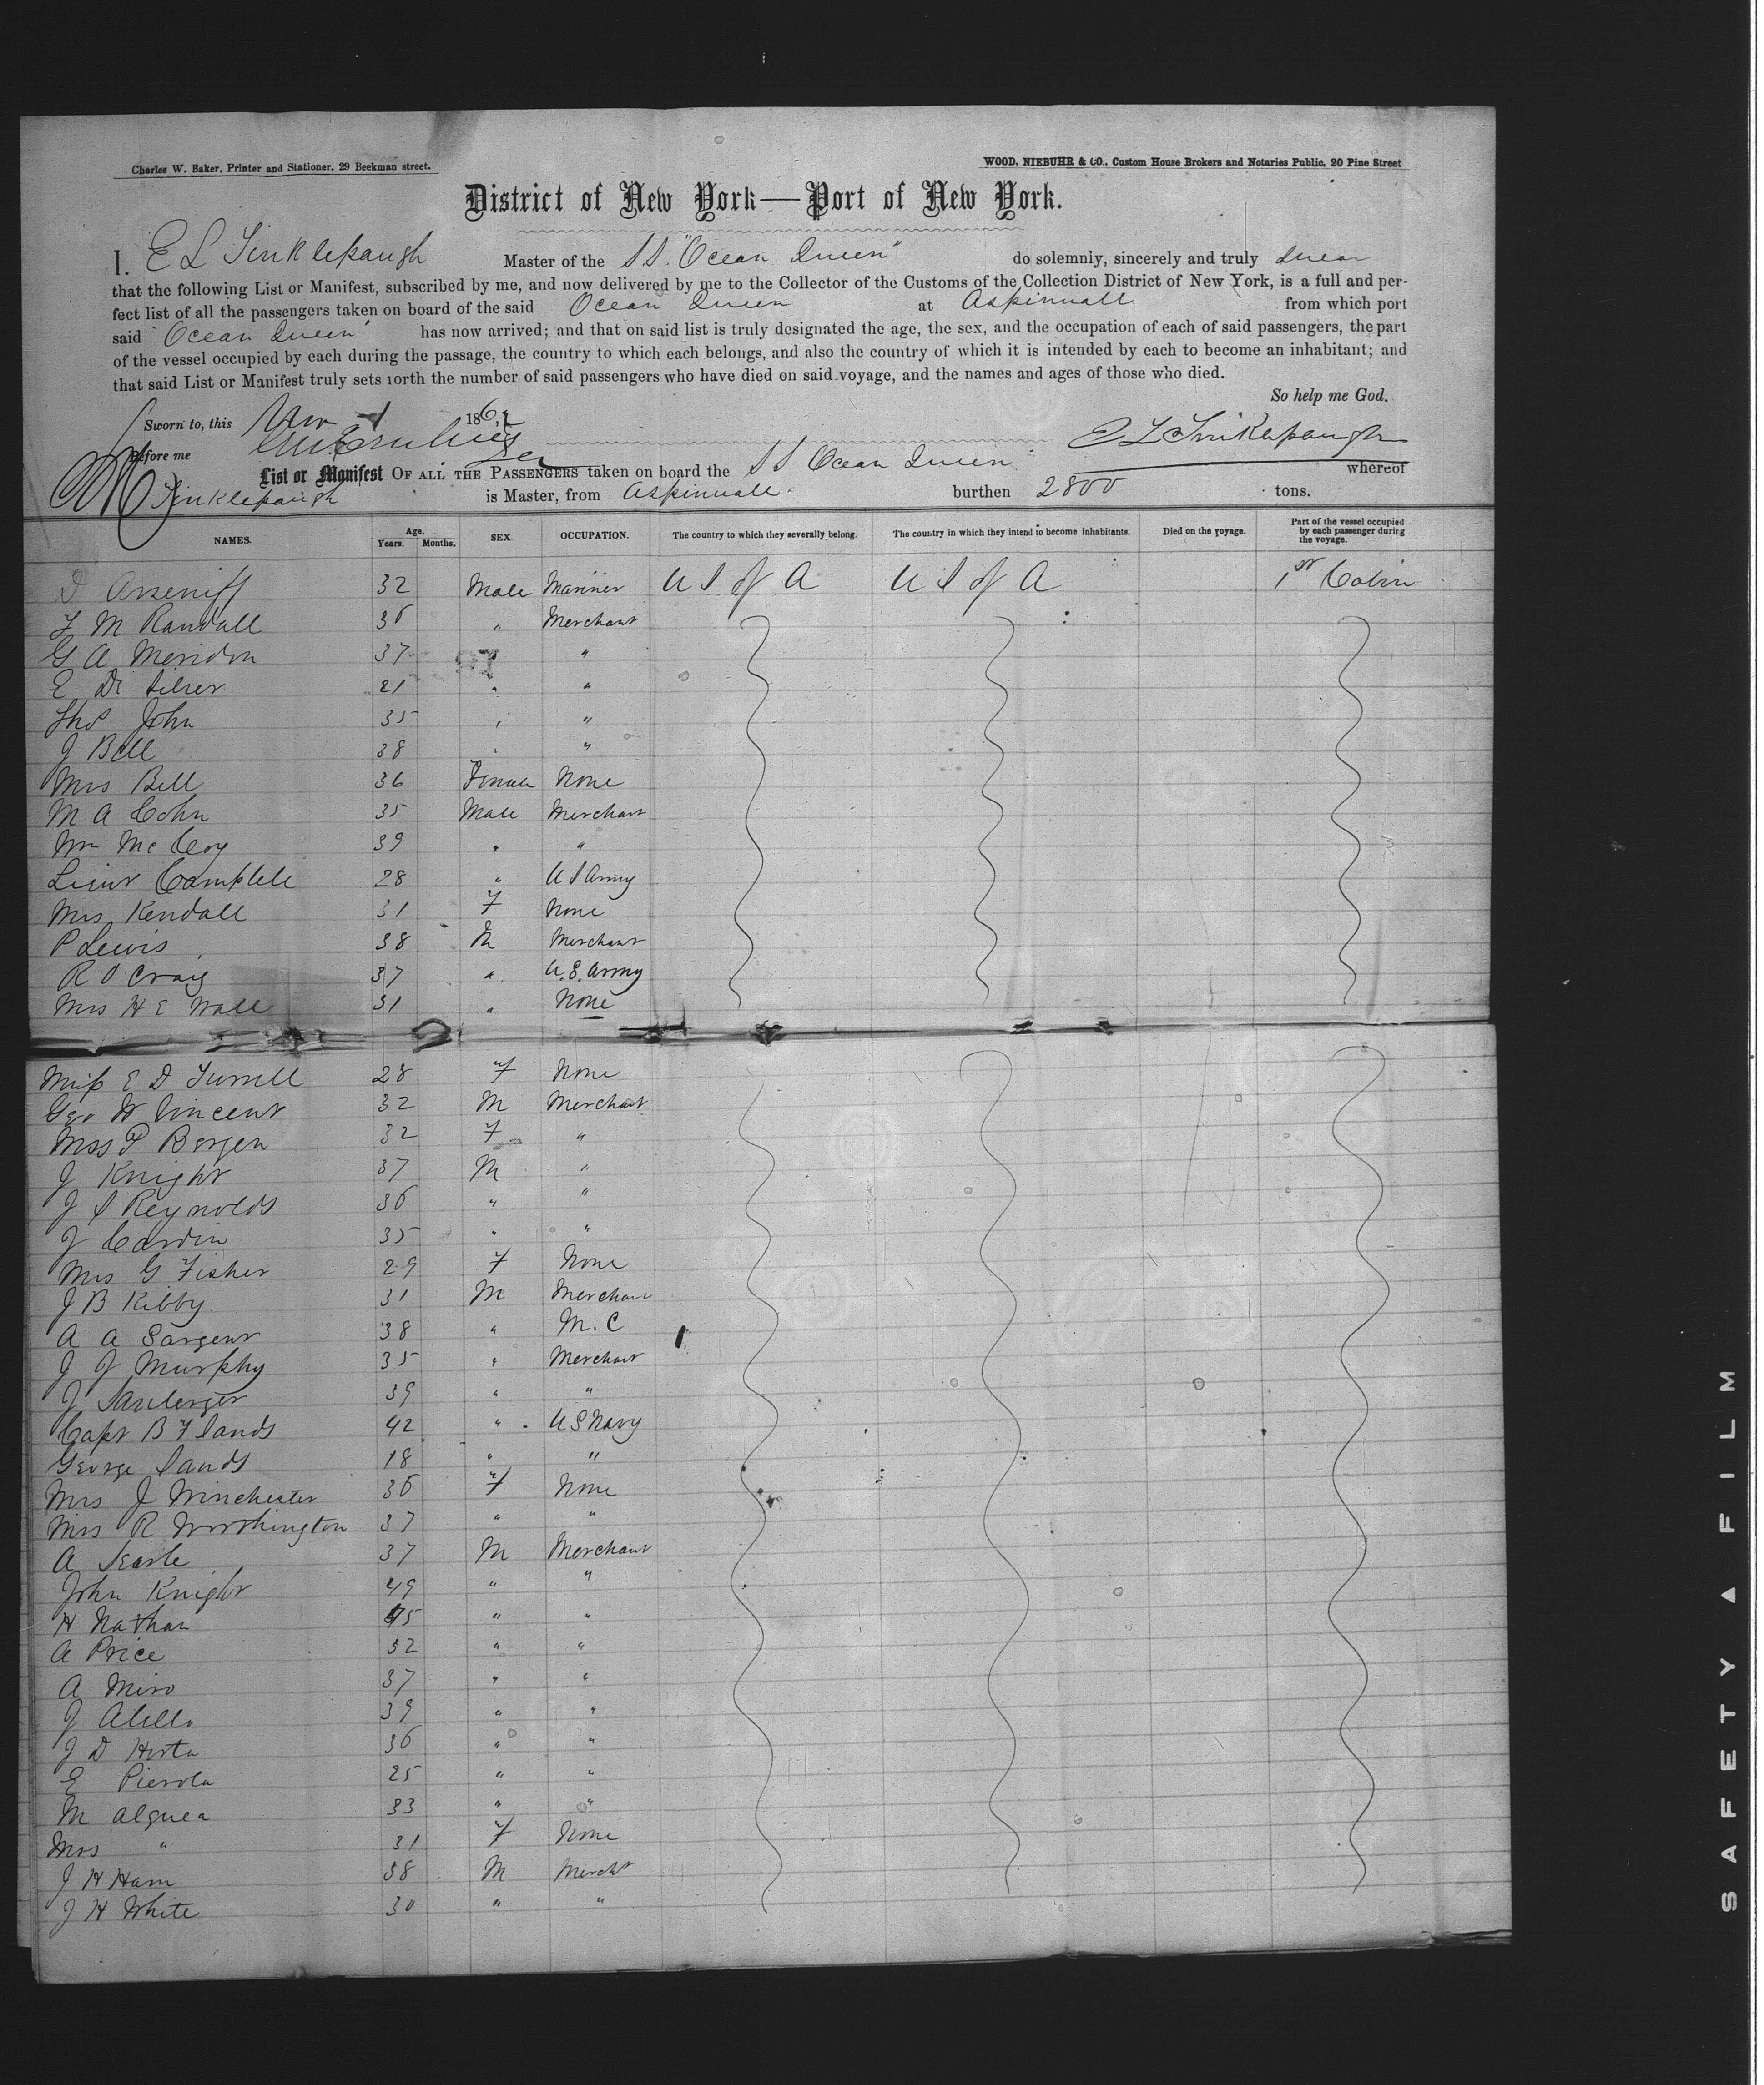 Charles W. Baker, Printer and Stationer, 29 Beekman street.
WOOD, NIEBUHR & CO., Custom House Brokers and Notaries Public, 20 Pine Street
District of New York—Port of New York.
I. E L Tinklepaugh Master of the S S. "Ocean Queen" do solemnly, sincerely and truly swear
that the following List or Manifest, subscribed by me, and now delivered by me to the Collector of the Customs of the Collection District of New York, is a full and per-
fect list of all the passengers taken on board of the said Ocean Queen at Aspinwall from which port
said "Ocean Queen" has now arrived; and that on said list is truly designated the age, the sex, and the occupation of each of said passengers, the part
of the vessel occupied by each during the passage, the country to which each belongs, and also the country of which it is intended by each to become an inhabitant; and
that said List or Manifest truly sets forth the number of said passengers who have died on said voyage, and the names and ages of those who died.
So help me God.
Sworn to, this Nov 186
Before me
E L Tinklepaugh
List or Manifest OF ALL THE PASSENGERS taken on board the S S Ocean Queen whereof
Tinklepaugh is Master, from Aspinwall burthen 2800 tons.
NAMES. Age. Years. Months. SEX. OCCUPATION. The country to which they severally belong. The country in which they intend to become inhabitants. Died on the voyage. Part of the vessel occupied by each passenger during the voyage.
D Arseniff 32 Male Mariner U S of A U S of A 1st Cabin
F M Randall 36 " Merchant
G A Meridon 37 "
E De 21 " "
Thos John 35 " "
J Bell 38 " "
Mrs Bell 36 Female None
M A Cohn 35 Male Merchant
Wm McCoy 39 " "
Lieut Campbell 28 " U S Army
Mrs Kendall 31 F None
P Lewis 38 M Merchant
R S Craig 37 " U.S. Army
Mrs H E Wall 31 " None
Miss E D Turrell 28 F None
Geo W Vincent 32 M Merchant
Miss P Bergen 32 F "
J Knight 37 M "
J S Reynolds 36 " "
J Cardin 35 " "
Mrs G Fisher 29 F None
J B Kibby 31 M Merchant
A A Sargent 38 " M.C
J J Murphy 35 " Merchant
J 39 " "
Capt B F Sands 42 " U S Navy
George Sands 18 " "
Mrs J Winchester 36 F None
Miss R Worthington 37 " "
A Searle 37 M Merchant
John Knight 49 " "
H Nathan 45 " "
A Price 32 " "
A Miro 37 " "
J 39 " "
J D Horta 36 " "
E Pierola 25 " "
M Alguea 33 " "
Mrs " 31 F None
J H Ham 38 M Mercht
J H White 30 " "
SAFETY ▲ FILM